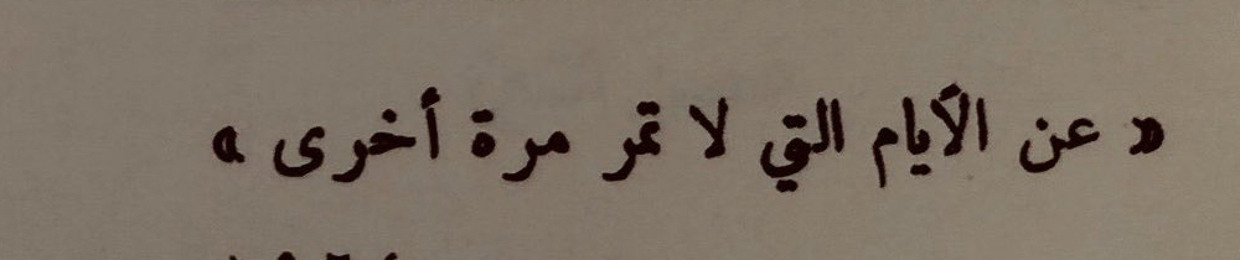 « عن الأيام التي لا تمر مرة أخرى »